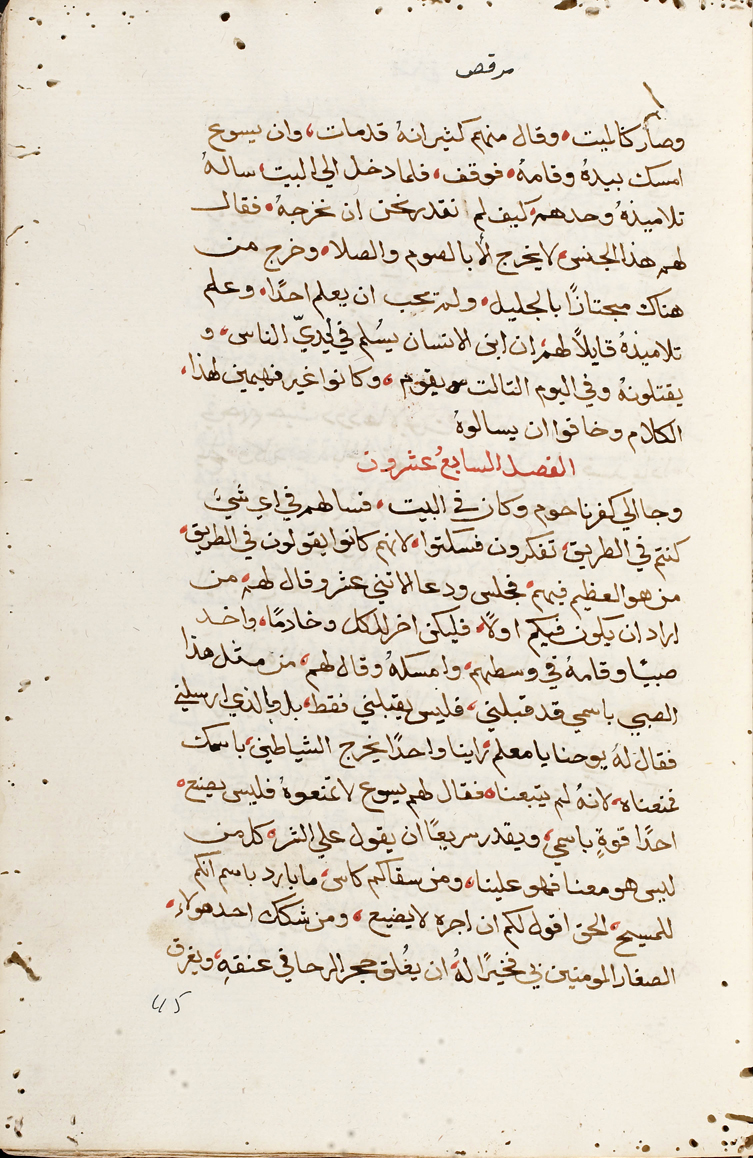 مرقص
وصار كالميت، وقال منهم كثير انهُ قدمات، وان يسوع
امسك بيدهُ وقامهُ، فوقف، فلما دخل الي البيت، سالهُ
تلاميذهُ وحدهم، كيف لم نقدر نحن ان نخرجهُ، فقال
لهم هذا الجنس، لا يخرج الا بالصوم والصلا، وخرج من
هناك مجتازًا بالجليل، ولم يحب ان يعلم احدًا، وعلم
تلاميذهُ قايلاً لهم، ان ابن الانسان يسُلم في ايديّ الناس، و
يقتلونهُ وفي اليوم التالت يقوم، وكانوا غير فهيمين لهذا،
الكلام وخافوا ان يسالوهُ
الفصل السابعُ عشرون
وجا الي كفرناحوم وكان في البيت، فسالهم في اي شيُ
كنتم في الطريق، تفكرون فسكتوا، لانهم كانوا يقولون في الطريق،
من هو العظيم فيهم، فجلس ودعا الاتني عشر وقال لهم، من
اراد ان يكون فيكم اولًا، فليكن اخر للكل وخادمًا، واخد
صبيًا وقامهُ في وسطهم، وامسكهُ وقال لهم، من مثل هذا
الصبي باسمي قد قبلني، فليس يقبلني فقط، بل والذي ارسلني
فقال لهُ يوحنا يا معلم، راينا واحدًا يخرج الشياطين، باسمك
فمنعناه، لانهُ لم يتبعنا، فقال لهم يسوع لا تمنعوهُ فليس يصنع،
احدًا قوةٍ باسمي، ويقدر سريعًا ان يقول علي الشر، كل من
ليس هو معنا فهو علينا، ومن سقاكم كاس، ما بارد باسم انكم
للمسيح، الحق اقول لكم ان اجره لا يضيع، ومن شكك احد هولاء،
الصغار المومنين بي فخيرًا لهُ، ان يغُلق حجر الرحا في عنقهِ، ويغرق
45